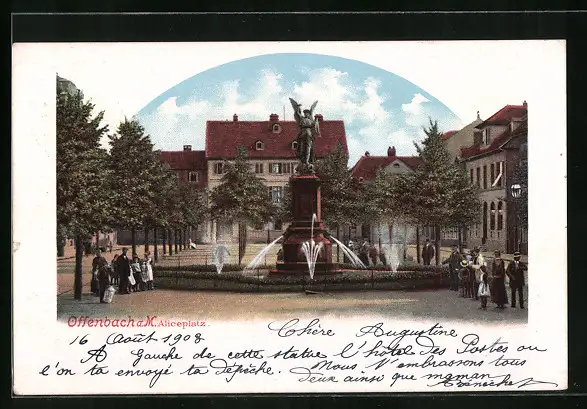 Offenbach a. M. Aliceplatz.
16 Août 1908 Chère Augustine
A Gauche de cette statue l'hôtel des Postes ou
l'on ta envoyé ta dépêche. Nous t'embrassons tous
deux ainsi que maman